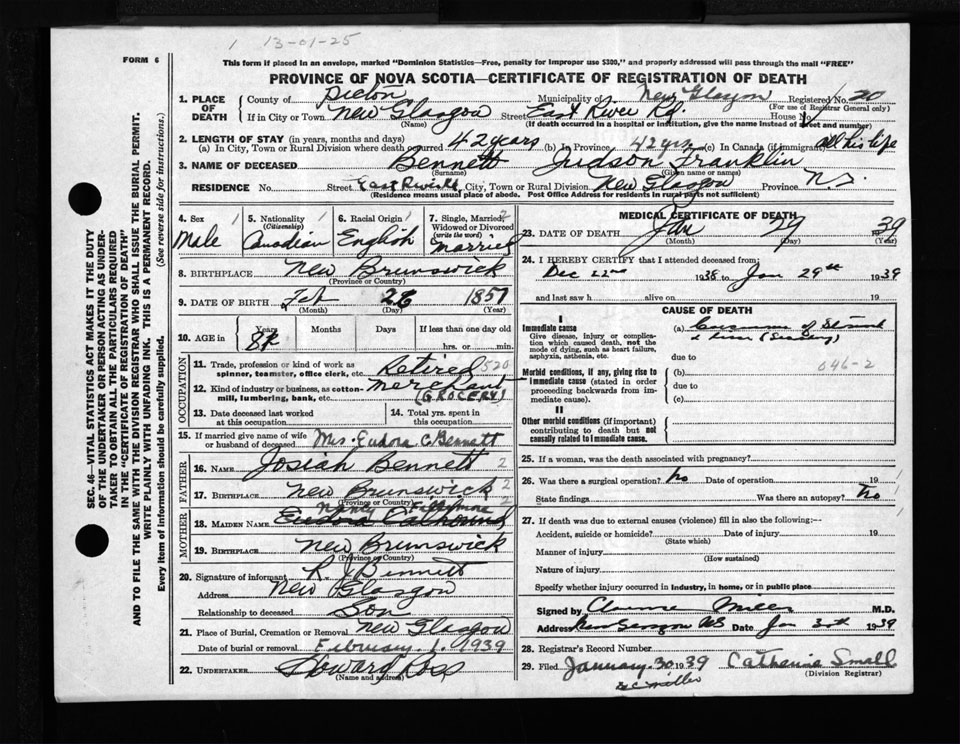 1 13-01-25
FORM 6
This form if placed in an envelope, marked "Dominion Statistics—Free, penalty for improper use $300," and properly addressed will pass through the mail "FREE"
PROVINCE OF NOVA SCOTIA—CERTIFICATE OF REGISTRATION OF DEATH
SEC. 46—VITAL STATISTICS ACT MAKES IT THE DUTY
OF THE UNDERTAKER OR PERSON ACTING AS UNDER-
TAKER TO OBTAIN ALL THE PARTICULARS REQUIRED
IN THE "CERTIFICATE OF REGISTRATION OF DEATH"
AND TO FILE THE SAME WITH THE DIVISION REGISTRAR WHO SHALL ISSUE THE BURIAL PERMIT.
WRITE PLAINLY WITH UNFADING INK. THIS IS A PERMANENT RECORD.
Every item of information should be carefully supplied. (See reverse side for instructions.)
1. PLACE OF DEATH
County of Pictou Municipality of New Glasgow Registered No. 20
(For use of Registrar General only)
If in City or Town New Glasgow Street East River Rd. House No. 1
(Name) (If death occurred in a hospital or institution, give the name instead of street and number)
2. LENGTH OF STAY (in years, months and days)
(a) In City, Town or Rural Division where death occurred 42 years (b) In Province 42 yrs (c) In Canada (if immigrant) all his life
3. NAME OF DECEASED Bennett Judson Franklin
(Surname) (Given name or names)
RESIDENCE No. Street East River Rd City, Town or Rural Division New Glasgow Province N.S.
(Residence means usual place of abode. Post Office Address for residents in rural parts not sufficient)
4. Sex 1
Male
5. Nationality 1
(Citizenship)
Canadian
6. Racial Origin 1
English
7. Single, Married, 2
Widowed or Divorced
(write the word)
Married
8. BIRTHPLACE New Brunswick
(Province or Country)
9. DATE OF BIRTH Feb 26 1857
(Month) (Day) (Year)
10. AGE in Years Months Days If less than one day old
hrs. or min.
OCCUPATION
11. Trade, profession or kind of work as Retired 520
spinner, teamster, office clerk, etc.
12. Kind of industry or business, as cotton- merchant
mill, lumbering, bank, etc. (GROCERY)
13. Date deceased last worked
at this occupation
14. Total yrs. spent in
this occupation
15. If married give name of wife
or husband of deceased Mrs. Eudora C. Bennett
FATHER
16. NAME Josiah Bennett 2
17. BIRTHPLACE New Brunswick 2
(Province or Country)
MOTHER
Nancy Fillmore 2
18. MAIDEN NAME Eudora Calhoun
19. BIRTHPLACE New Brunswick
(Province or Country)
20. Signature of informant R. J. Bennett
Address New Glasgow
Relationship to deceased Son
21. Place of Burial, Cremation or Removal New Glasgow
Date of burial or removal February 1, 1939
22. UNDERTAKER Howard Ross
(Name and address)
MEDICAL CERTIFICATE OF DEATH
23. DATE OF DEATH Jan 29 1939
(Month) (Day) (Year)
24. I HEREBY CERTIFY that I attended deceased from
Dec 22nd 1938 to Jan 29th 1939
and last saw h alive on 19
CAUSE OF DEATH
I
Immediate cause
Give disease, injury or complica-
tion which caused death, not the
mode of dying, such as heart failure,
asphyxia, asthenia, etc.
(a) Carcinoma of Stomach
& Liver (Secondary)
due to
Morbid conditions, if any, giving rise to
immediate cause (stated in order
proceeding backwards from im-
mediate cause).
(b) 046-2
due to
(c)
II
Other morbid conditions (if important)
contributing to death but not
causally related to immediate cause.
25. If a woman, was the death associated with pregnancy?
26. Was there a surgical operation? No Date of operation 19
State findings Was there an autopsy? No
27. If death was due to external causes (violence) fill in also the following:—
Accident, suicide or homicide? Date of injury 19
(State which)
Manner of injury
(How sustained)
Nature of injury
Specify whether injury occurred in industry, in home, or in public place
Signed by Clarence Miller M.D.
Address New Glasgow NS Date Jan 30th 1939
28. Registrar's Record Number
29. Filed January 30 1939 Catherine Small
(Division Registrar)